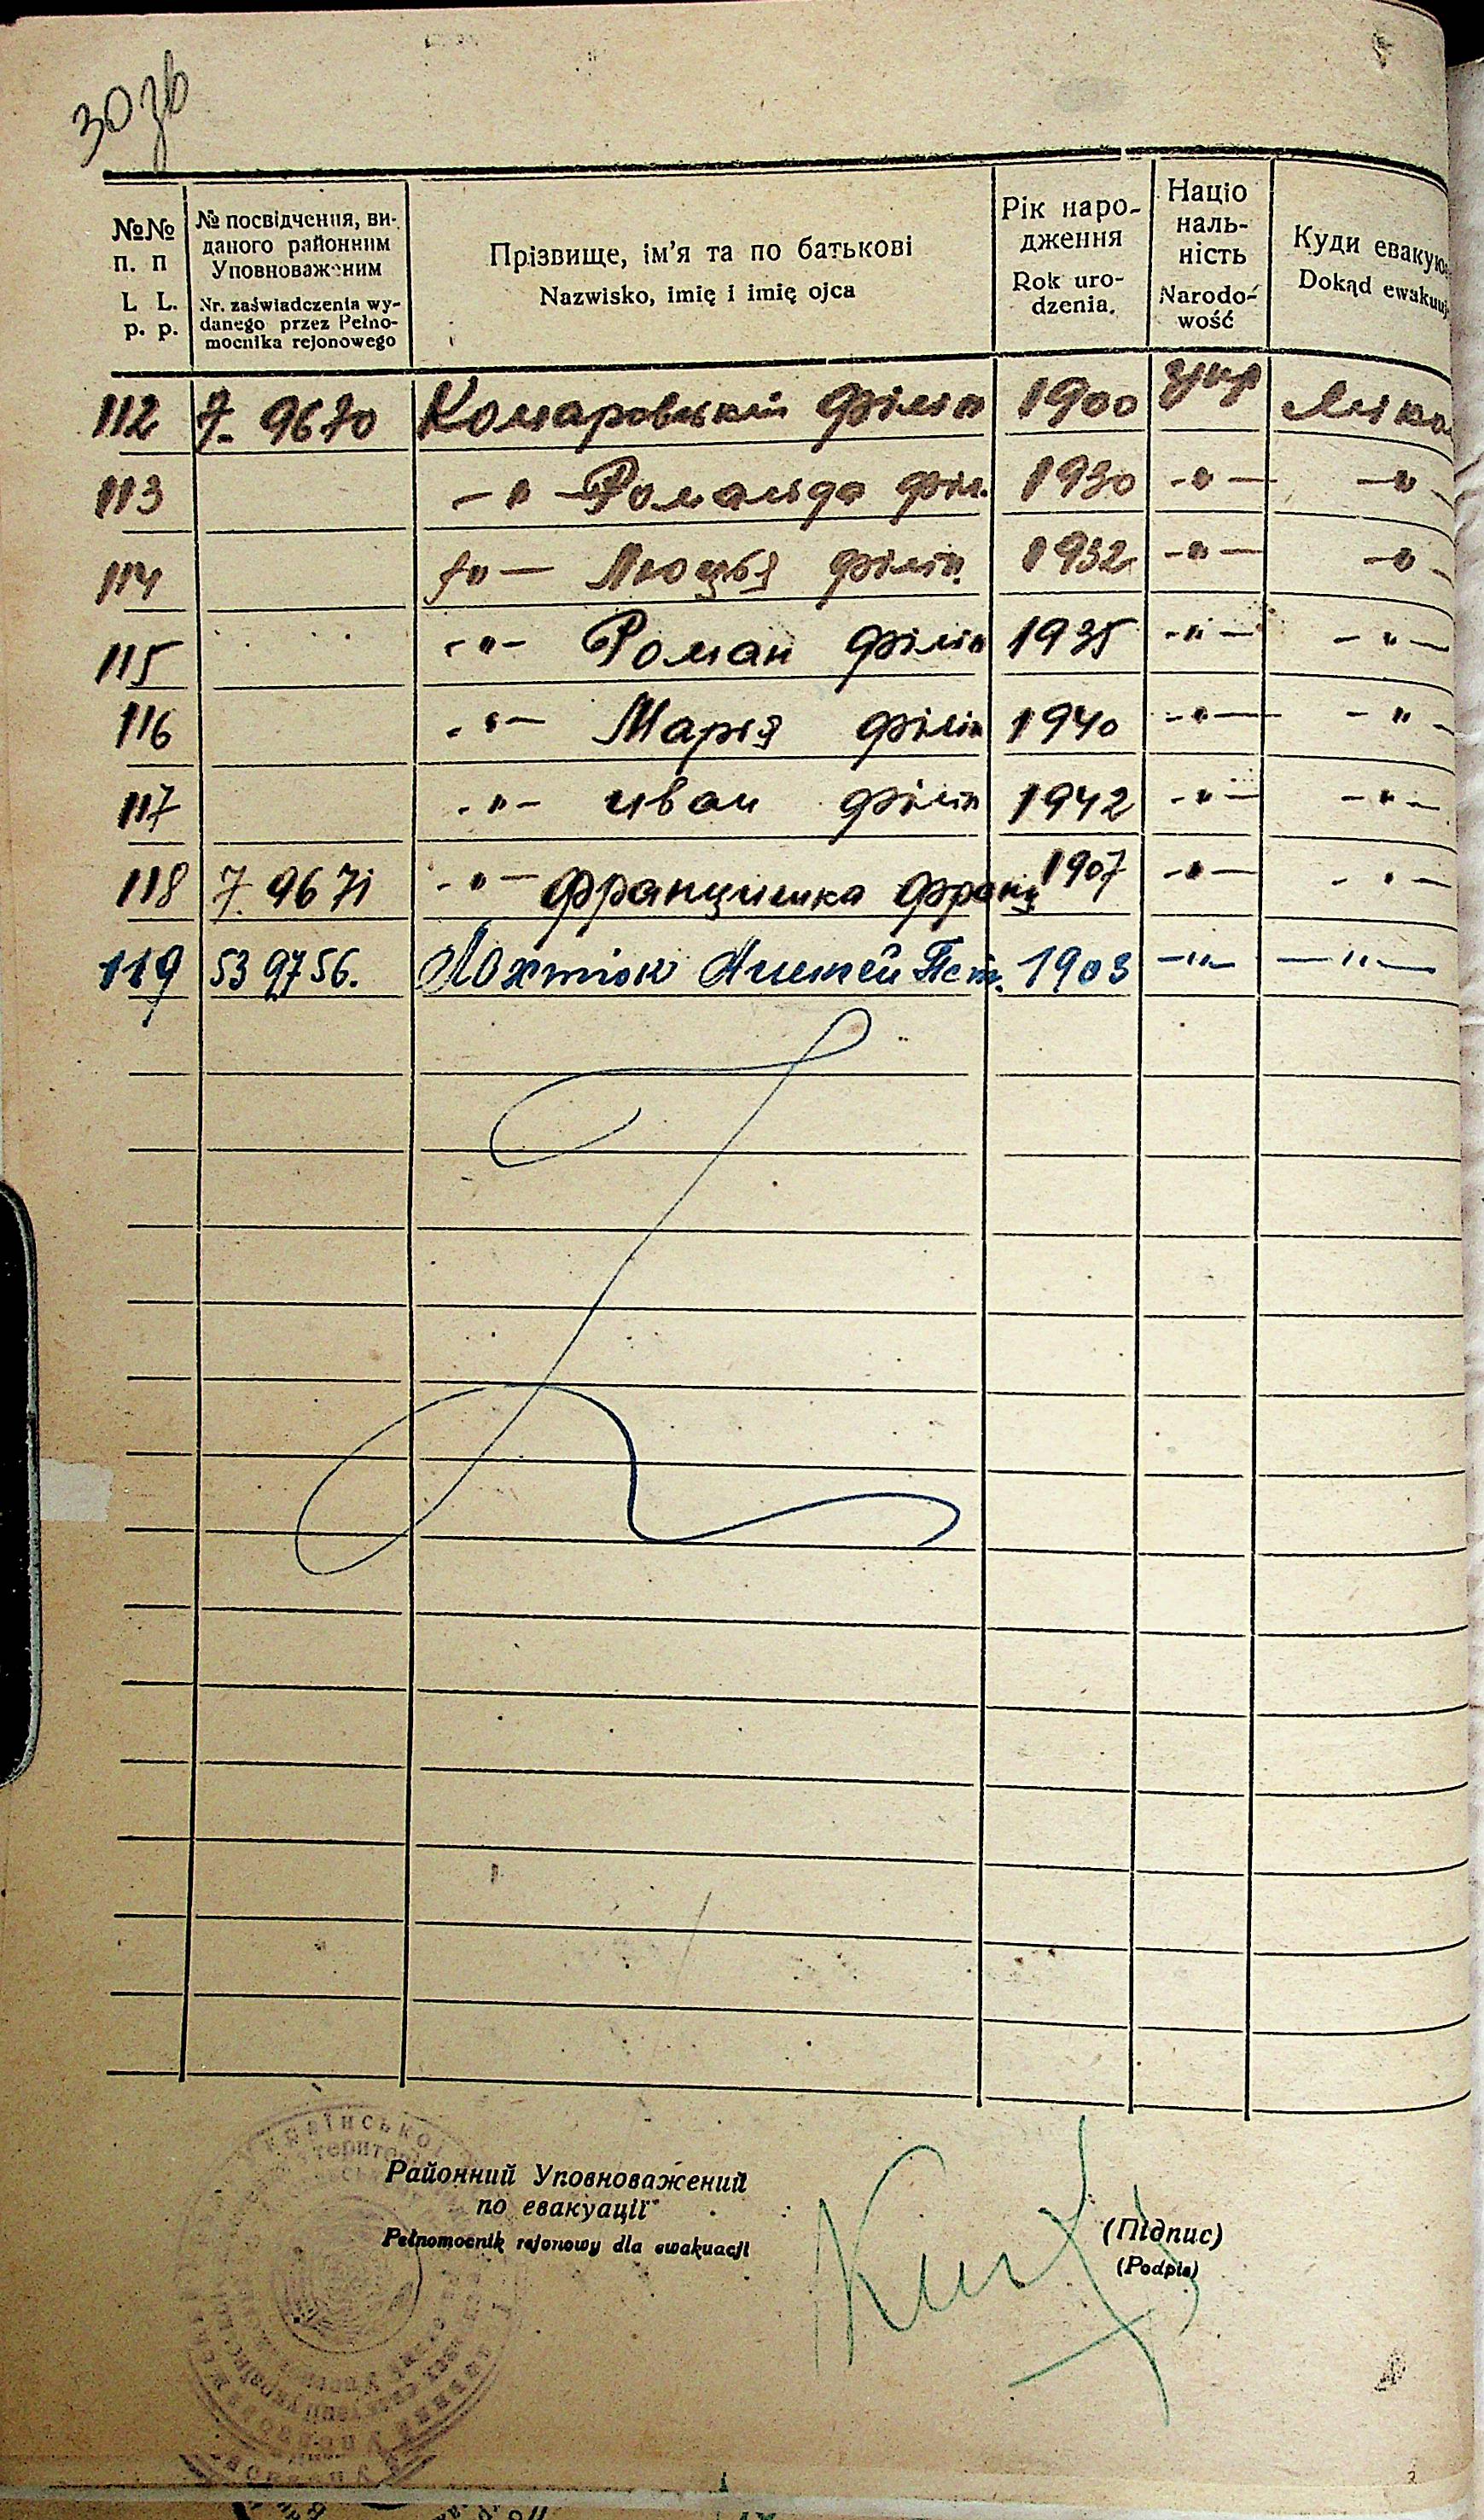 30 зв
№№ п. п L L. p. p.
№ посвідчення, виданого районним Уповноваженим
Nr. zaświadczenia wydanego przez Pełnomocnika rejonowego
Прізвище, ім'я та по батькові
Nazwisko, imię i imię ojca
Рік народження
Rok urodzenia.
Націо наль- ність
Narodowość
Куди евакую
Dokąd ewakuuj
112 7. 9670 Комаровський Філіп 1900 укр
113 -"- Ромальда Філ. 1930 -"- -"-
114 -"- Люцья Філіп. 1932 -"- -"-
115 -"- Роман Філіп 1935 -"- -"-
116 -"- Марія Філіп 1940 -"- -"-
117 -"- иван Філіп 1942 -"- -"-
118 7. 9671 -"- Францишка Франц 1907 -"- -"-
119 539756. 1903 -"- -"-
Районний Уповноважений
по евакуації
Pełnomocnik rejonowy dla ewakuacji
(Підпис)
(Podpis)